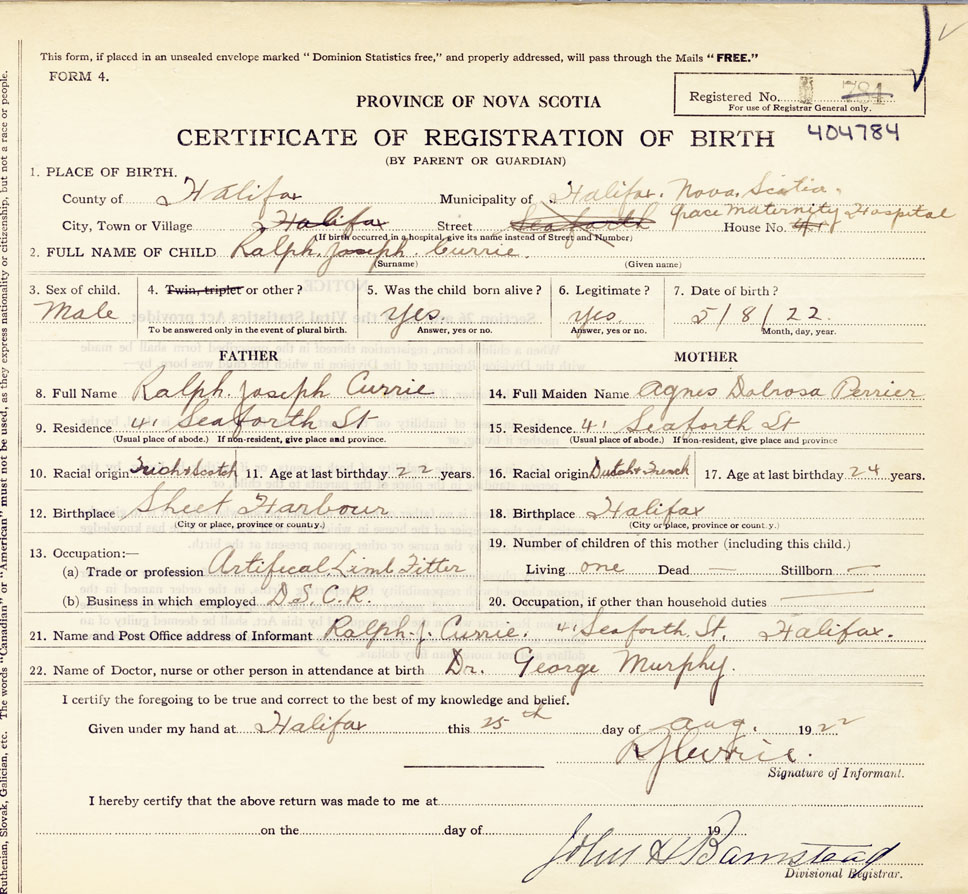 This form, if placed in an unsealed envelope marked "Dominion Statistics free," and properly addressed, will pass through the Mails "FREE."
FORM 4.
Registered No. 784
For use of Registrar General only.
PROVINCE OF NOVA SCOTIA
CERTIFICATE OF REGISTRATION OF BIRTH 404784
(BY PARENT OR GUARDIAN)
1. PLACE OF BIRTH.
County of Halifax Municipality of Halifax. Nova Scotia.
City, Town or Village Halifax Street Seaforth Grace Maternity Hospital House No. 41
(If birth occurred in a hospital, give its name instead of Street and Number)
2. FULL NAME OF CHILD Ralph. Joseph. Currie.
(Surname) (Given name)
3. Sex of child. 4. Twin, triplet or other? 5. Was the child born alive? 6. Legitimate? 7. Date of birth?
Male Yes. Yes. 5/8/22.
To be answered only in the event of plural birth. Answer, yes or no. Answer, yes or no. Month, day, year.
FATHER MOTHER
8. Full Name Ralph. Joseph Currie 14. Full Maiden Name Agnes Dolrosa Perrier
9. Residence 41 Seaforth St 15. Residence 41 Seaforth St
(Usual place of abode.) If non-resident, give place and province. (Usual place of abode.) If non-resident, give place and province
10. Racial origin Irich & Scotch 11. Age at last birthday 22 years. 16. Racial origin Dutch & French 17. Age at last birthday 24 years.
12. Birthplace Sheet Harbour 18. Birthplace Halifax
(City or place, province or county.) (City or place, province or county.)
13. Occupation:— 19. Number of children of this mother (including this child.)
(a) Trade or profession Artifical Limb Fitter Living one Dead — Stillborn —
(b) Business in which employed D.S.C.R. 20. Occupation, if other than household duties —
21. Name and Post Office address of Informant Ralph. J. Currie. 41 Seaforth, St. Halifax.
22. Name of Doctor, nurse or other person in attendance at birth Dr. George Murphy.
I certify the foregoing to be true and correct to the best of my knowledge and belief.
Given under my hand at Halifax this 25th day of Aug. 1922
RJCurrie.
Signature of Informant.
I hereby certify that the above return was made to me at
on the day of 19
John H Barnstead
Divisional Registrar.
Ruthenian, Slovak, Galician, etc. The words "Canadian" or "American" must not be used, as they express nationality or citizenship, but not a race or people.